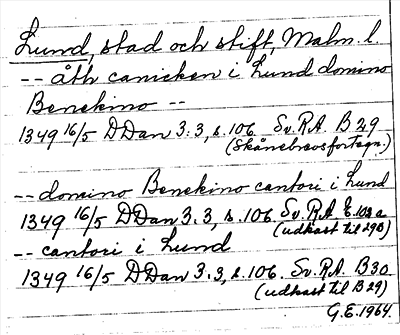 Lund, stad och stift, Malm. l.
-- åth canicken i Lund domino
Benekino --
1349 16/5 DDan 3:3, s. 106. Sv. RA. B 29
(Skånebrevsfortegn.)
-- domino Benekino cantori i Lund
1349 16/5 DDan 3.3, s. 106. Sv. RA. E. 103 a
(udkast til 29B)
-- cantori i Lund
1349 16/5 DDan 3.3, s. 106. Sv. RA. B 30
(udkast til B 29)
G.E. 1964.